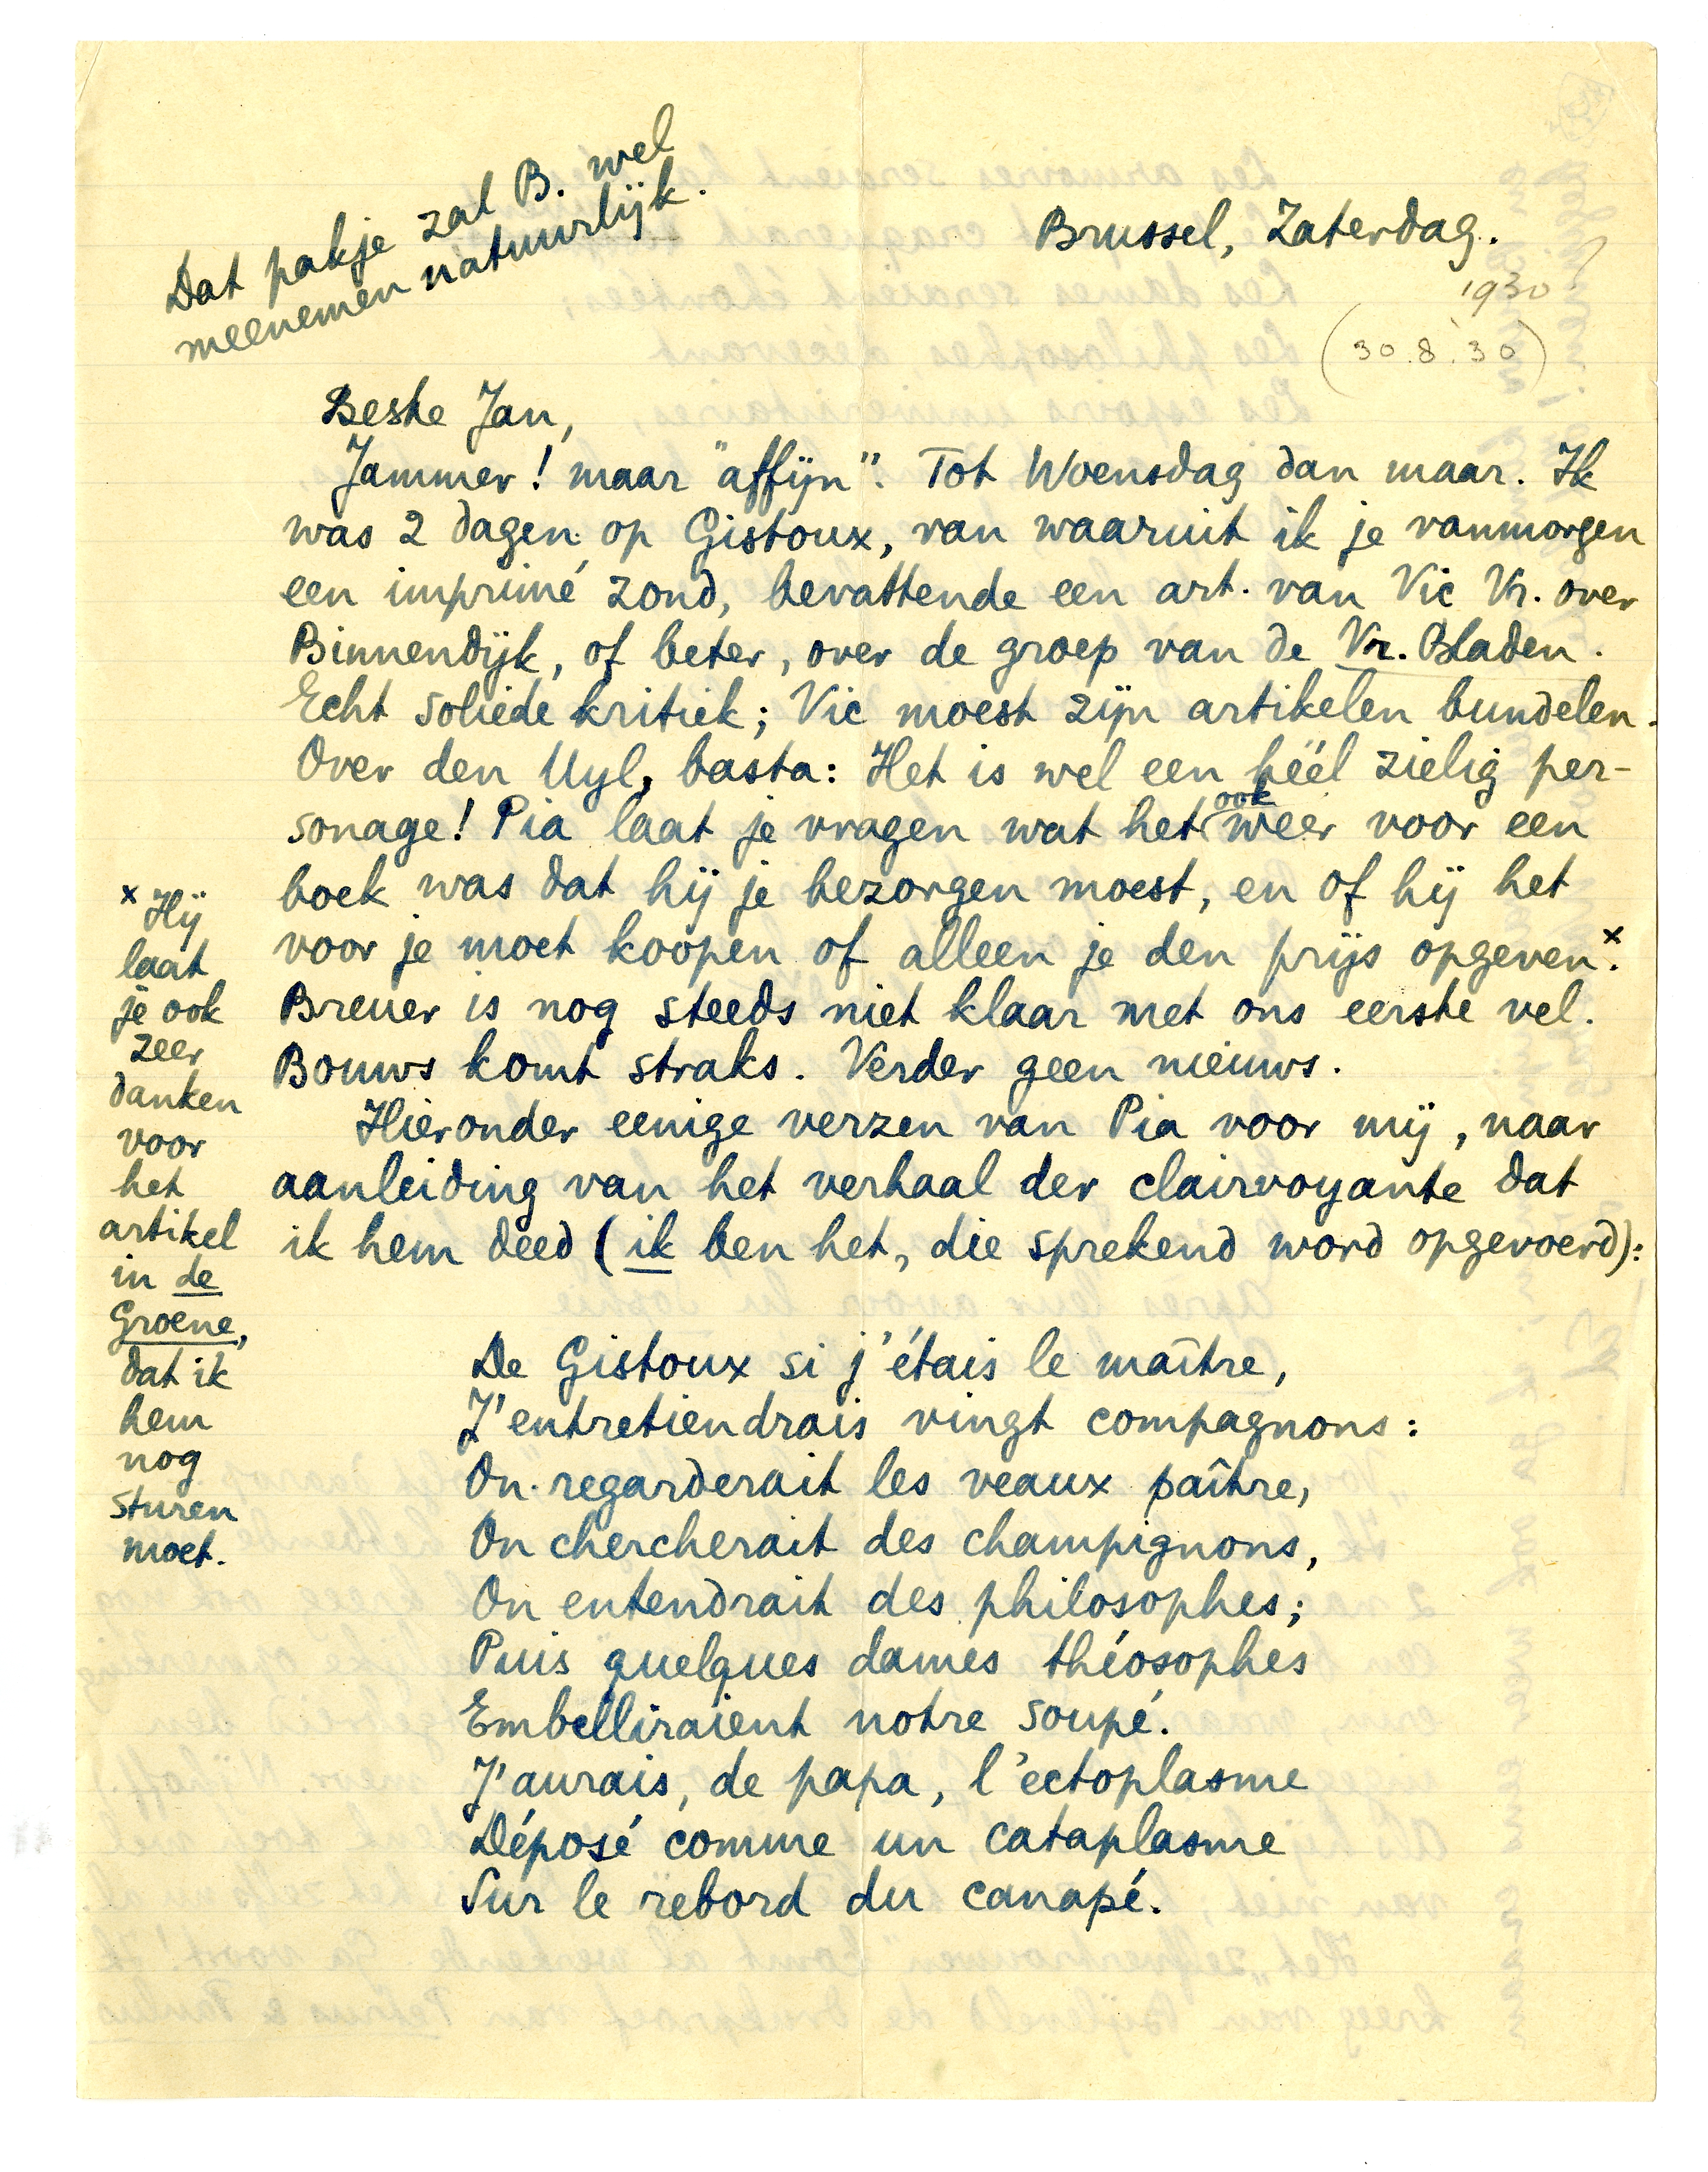 Dat pakje zal B. wel
meenemen natuurlijk.
Brussel, Zaterdag.
1930
(30.8.'30)
Beste Jan,
Jammer! maar "affijn". Tot Woensdag dan maar. Ik
was 2 dagen op Gistoux, van waaruit ik je vanmorgen
een imprimé zond, bevattende een art. van Vic Vr. over
Binnendijk, of beter, over de groep van de Vr. Bladen.
Echt soliede kritiek; Vic moest zijn artikelen bundelen.
Over den Uyl, basta: Het is wel een héél zielig per-
sonage! Pia laat je vragen wat het ook weer voor een
boek was dat hij je bezorgen moest, en of hij het
voor je moet koopen of alleen je den prijs opgeven.x
Breuer is nog steeds niet klaar met ons eerste vel.
Bouws komt straks. Verder geen nieuws.
Hieronder eenige verzen van Pia voor mij, naar
aanleiding van het verhaal der clairvoyante dat
ik hem deed (ik ben het, die sprekend word opgevoerd):
x Hij
laat
je ook
zeer
danken
voor
het
artikel
in de
Groene,
dat ik
hem
nog
sturen
moet.
De Gistoux si j'étais le maître,
J'entretiendrais vingt compagnons:
On regarderait les veaux paître,
On chercherait des champignons,
On entendrait des philosophes;
Puis quelques dames théosophes
Embelliraient notre soupé.
J'aurais, de papa, l'ectoplasme
Déposé comme un cataplasme
Sur le rebord du canapé.